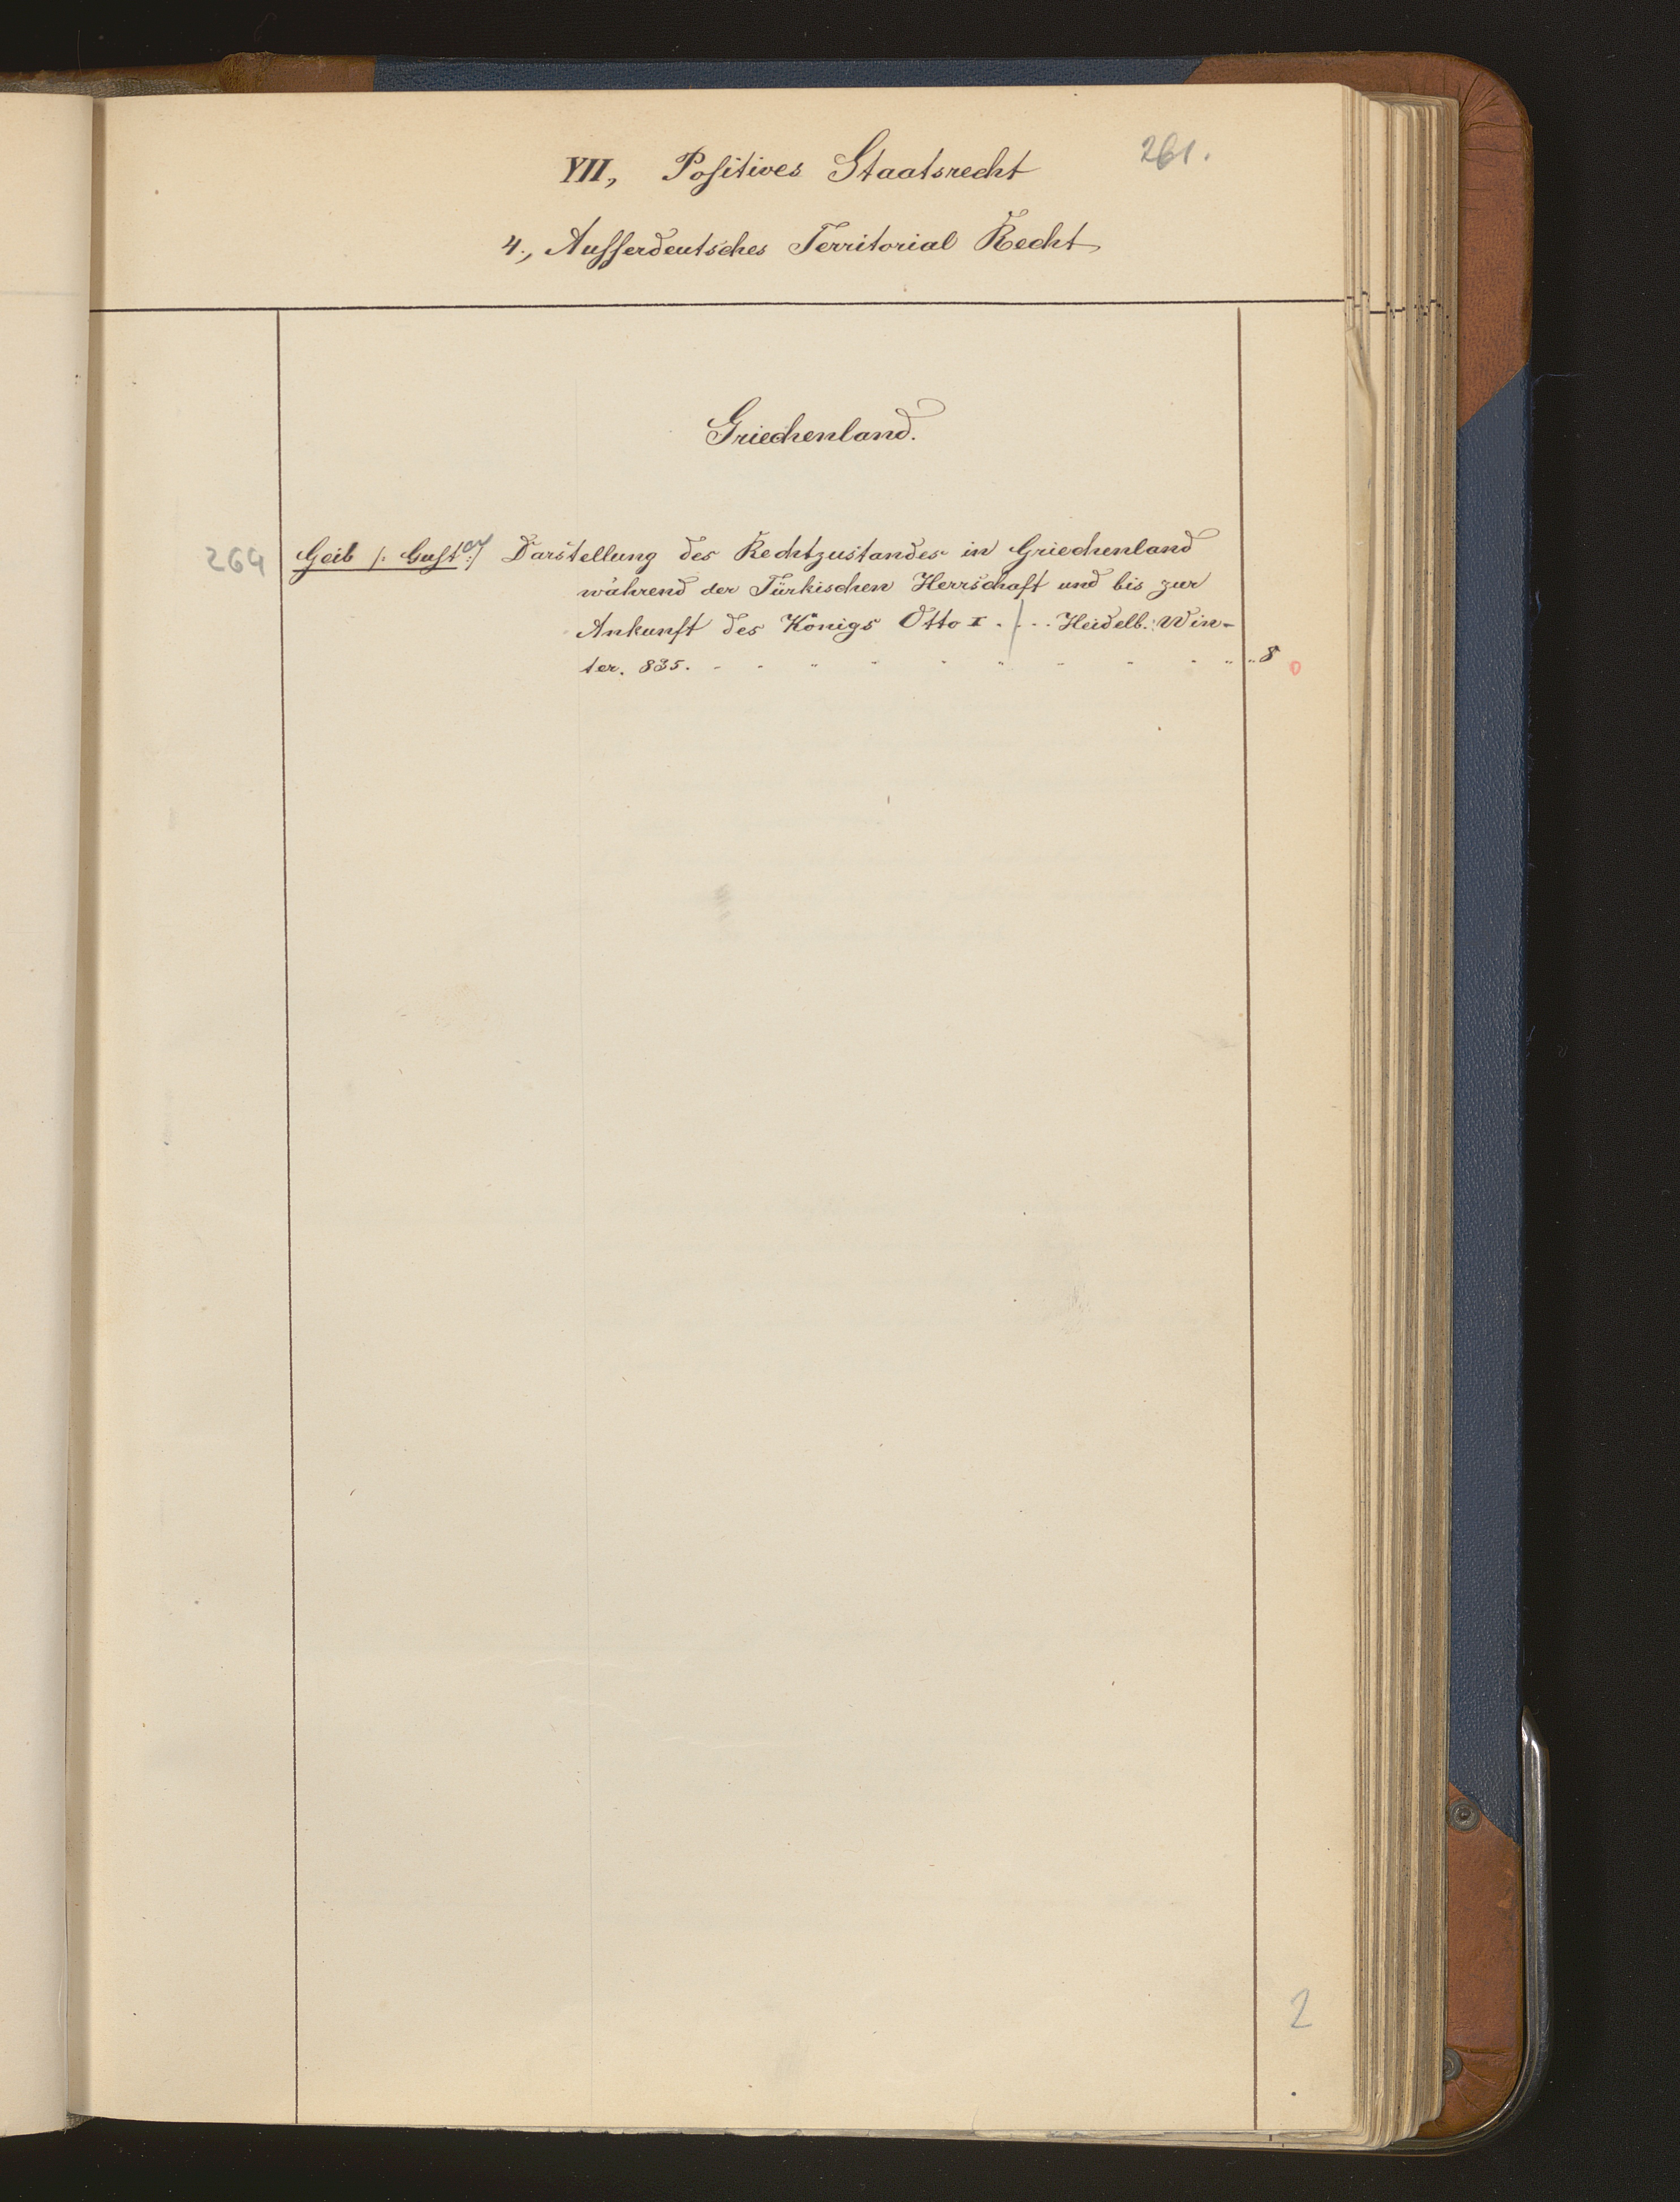 261.
VII, Positives Staatsrecht
4., Ausserdeutsches Territorial Recht
Griechenland.
264 Geib /: Gust :/ Darstellung des Rechtzustandes in Griechenland
während der Türkischen Herrschaft und bis zur
Ankunft des Königs Otto I. . . . Heidelb. Win-
ter. 835. 8
0
2